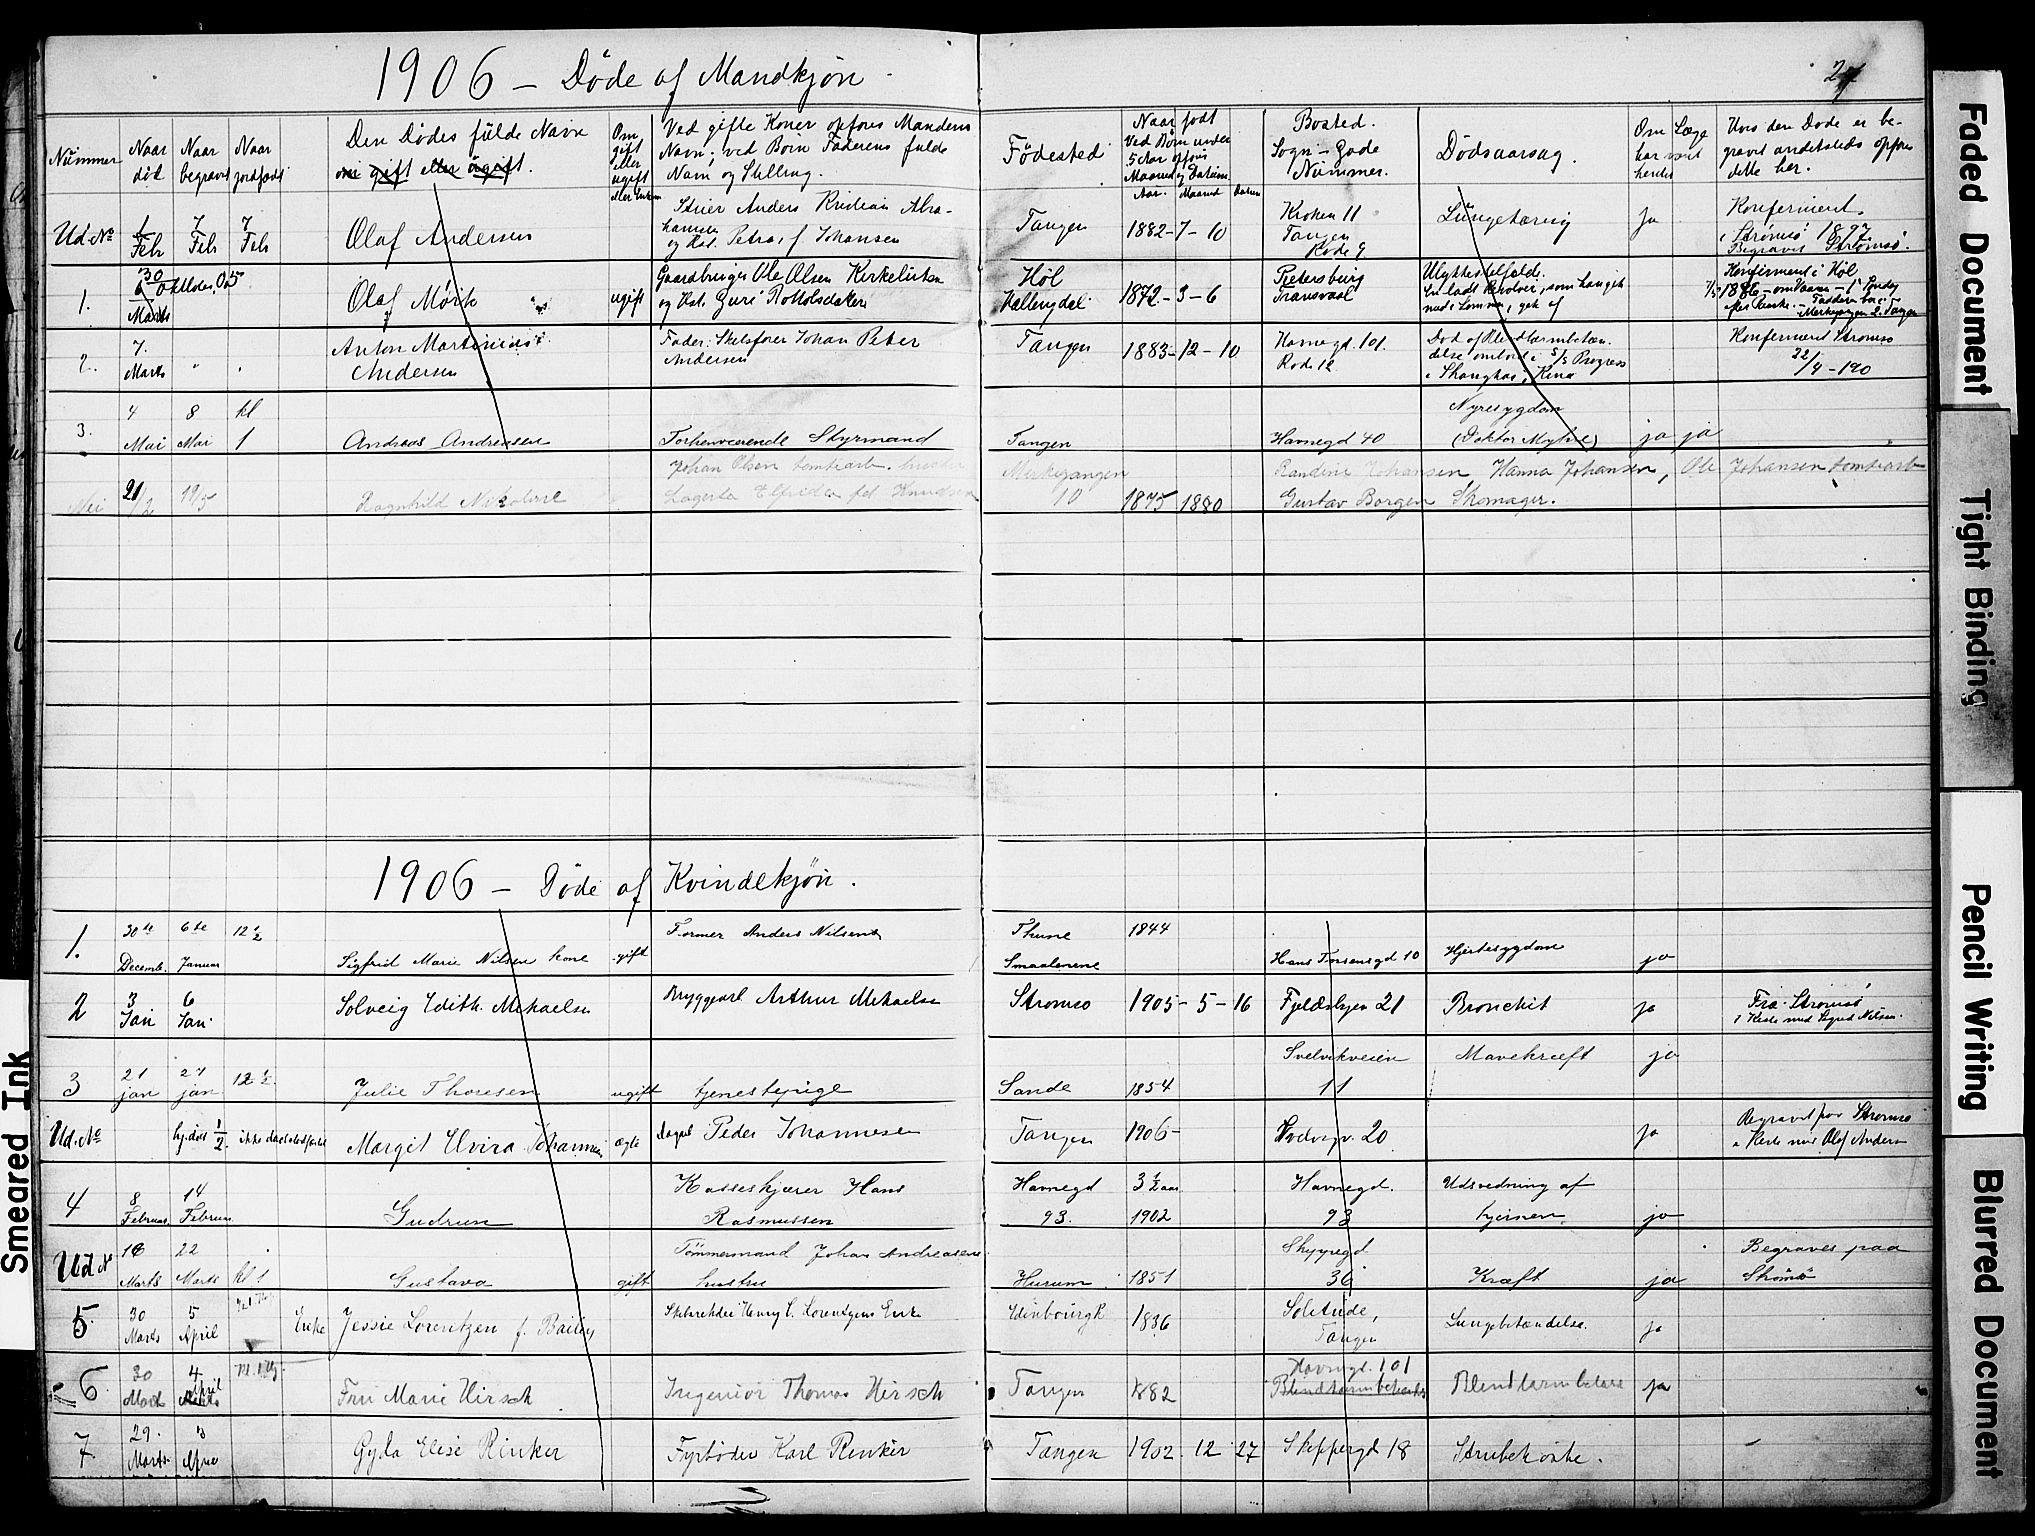 1906 – Døde af Mandkjøn.
27
Nummer
Naar død
Naar begravet
Naar jordfæstet
Den Dødes fulde Navn
om gift eller ugift.
Om gift eller ugift eller Enke
Ved gifte Koner opføres Mandens Navn; ved Børn Faderens fulde Navn og Stilling.
Fødested
Naar født
Ved Børn under 5 Aar opføres Maaned og Datum.
Aar. Maaned Datum
Bosted.
Sogn – Gade
Nummer.
Dødsaarsag.
Om Læge har vært hentet
Hvis den Døde er begravet andetsteds opføres dette her.
Ud. No 1 Feb 7 Feb 7 Feb Olaf Andersen
Anders Kristian Abrahamsen
og Hst. Petra, f. Johansen
Tangen 1882 – 7 – 10 Kroken 11
Tangen
Rode 9
Lungetæring Ja Konfirmert
i Strømsø 1897.
Begravet Strømsø.
1. 30 Oktober 05 Marts Olaf Mørk ugift Gaardbruger Ole Olsen
og Hst. Guri
Høl
Hallingdal 1872 – 3 – 6 Pietersburg
Transvaal
Ulykkestilfælde.
En ladt Revolver, som han gik
med i Lommen, gik af
Konfirmert i Høl
1886
2. 7. Marts " " Anton Martinius
Andersen
Fader: Skibsfører Johan Peter
Andersen
Tangen 1883 – 12 – 10 Havnegd. 101.
Rode 12
Død af Blindtarmbetæn-
delse ombord i S/S Progress
i Shanghai, Kina
Konfirmert Strømsø
22/4 – 190
3. 4 Mai 8 Mai kl 1 Andreas Andreasen Forhenværende Styrmand Tangen Havnegd 40 Nyresygdom
(Doktor Myhre) ja ja
21/2 19/5 Ragnhild Nikoline
Johan Olsen tomtearb.
Lagerta Elfrida fød Knudsen
Merkegangen
10 1875 1880
Randine Johansen, Hanna Johansen, Ole Johansen tomtearb
Gustav Borgen Skomager.
1906 – Døde af Kvindekjøn.
1. 30te Decemb. 6te Januar 12 ½ Sigfrid Marie Nilsen kone gift Former Anders Nilsens Thune
Smaalenene 1844 Hans Tørsensgd 10 Hjertesygdom ja
2 3 Jan 6 Jan. Solveig Edith. Mikaelsen Bryggearb Arthur Mikaelsen Strømsø 1905 – 5 – 16 21 Bronchit ja Fra Strømsø
i Kiste med Sigrid Nilsen.
3 21 jan 27 jan 12 ½ Julie Thoresen ugift tjenestepige Sande 1854 Svelvikveien
11 Mavekræft ja
Ud. No 1/2. ikke Margit Elvira Johannesen ægte Peder Johannesen Tangen 1906 – 20 ja Begravet paa Strømsø
i Kiste med Olaf Andersen
4 8 Februar 14 Februar Gudrun Kasseskjærer Hans
Rasmussen Havnegd
93. 3 ½ aar
1902 Havnegd.
93 Udsvedning af
hjernen ja
Ud No 16 Marts 22 Marts kl 1 Gustava gift Tømmermand Johan Andreasens
hustru Hurum 1851 Skippergd
36 Kræft ja Begraves paa
Strømsø
5. 30 Marts 5 April Enke Jessie Lorentzen f. Bailey Skibsreder Henry C. Lorentzens Enke Edinbourgh 1836 Solitude,
Tangen Lungebetændelse. ja
6 30 Marts 4 April Fru Marie Hirsch Ingeniør Thomas Hirsch Tangen 1882 Havnegd. 101 Blindtarmbetænd ja
7 29. Marts April Gyda Elise Rinker Fyrbøder Karl Renker Tangen 1902. 12 27 Skippergd 18 Strubehoste.
Faded Document
Tight Binding
Pencil Writing
Blurred Document
Smeared Ink